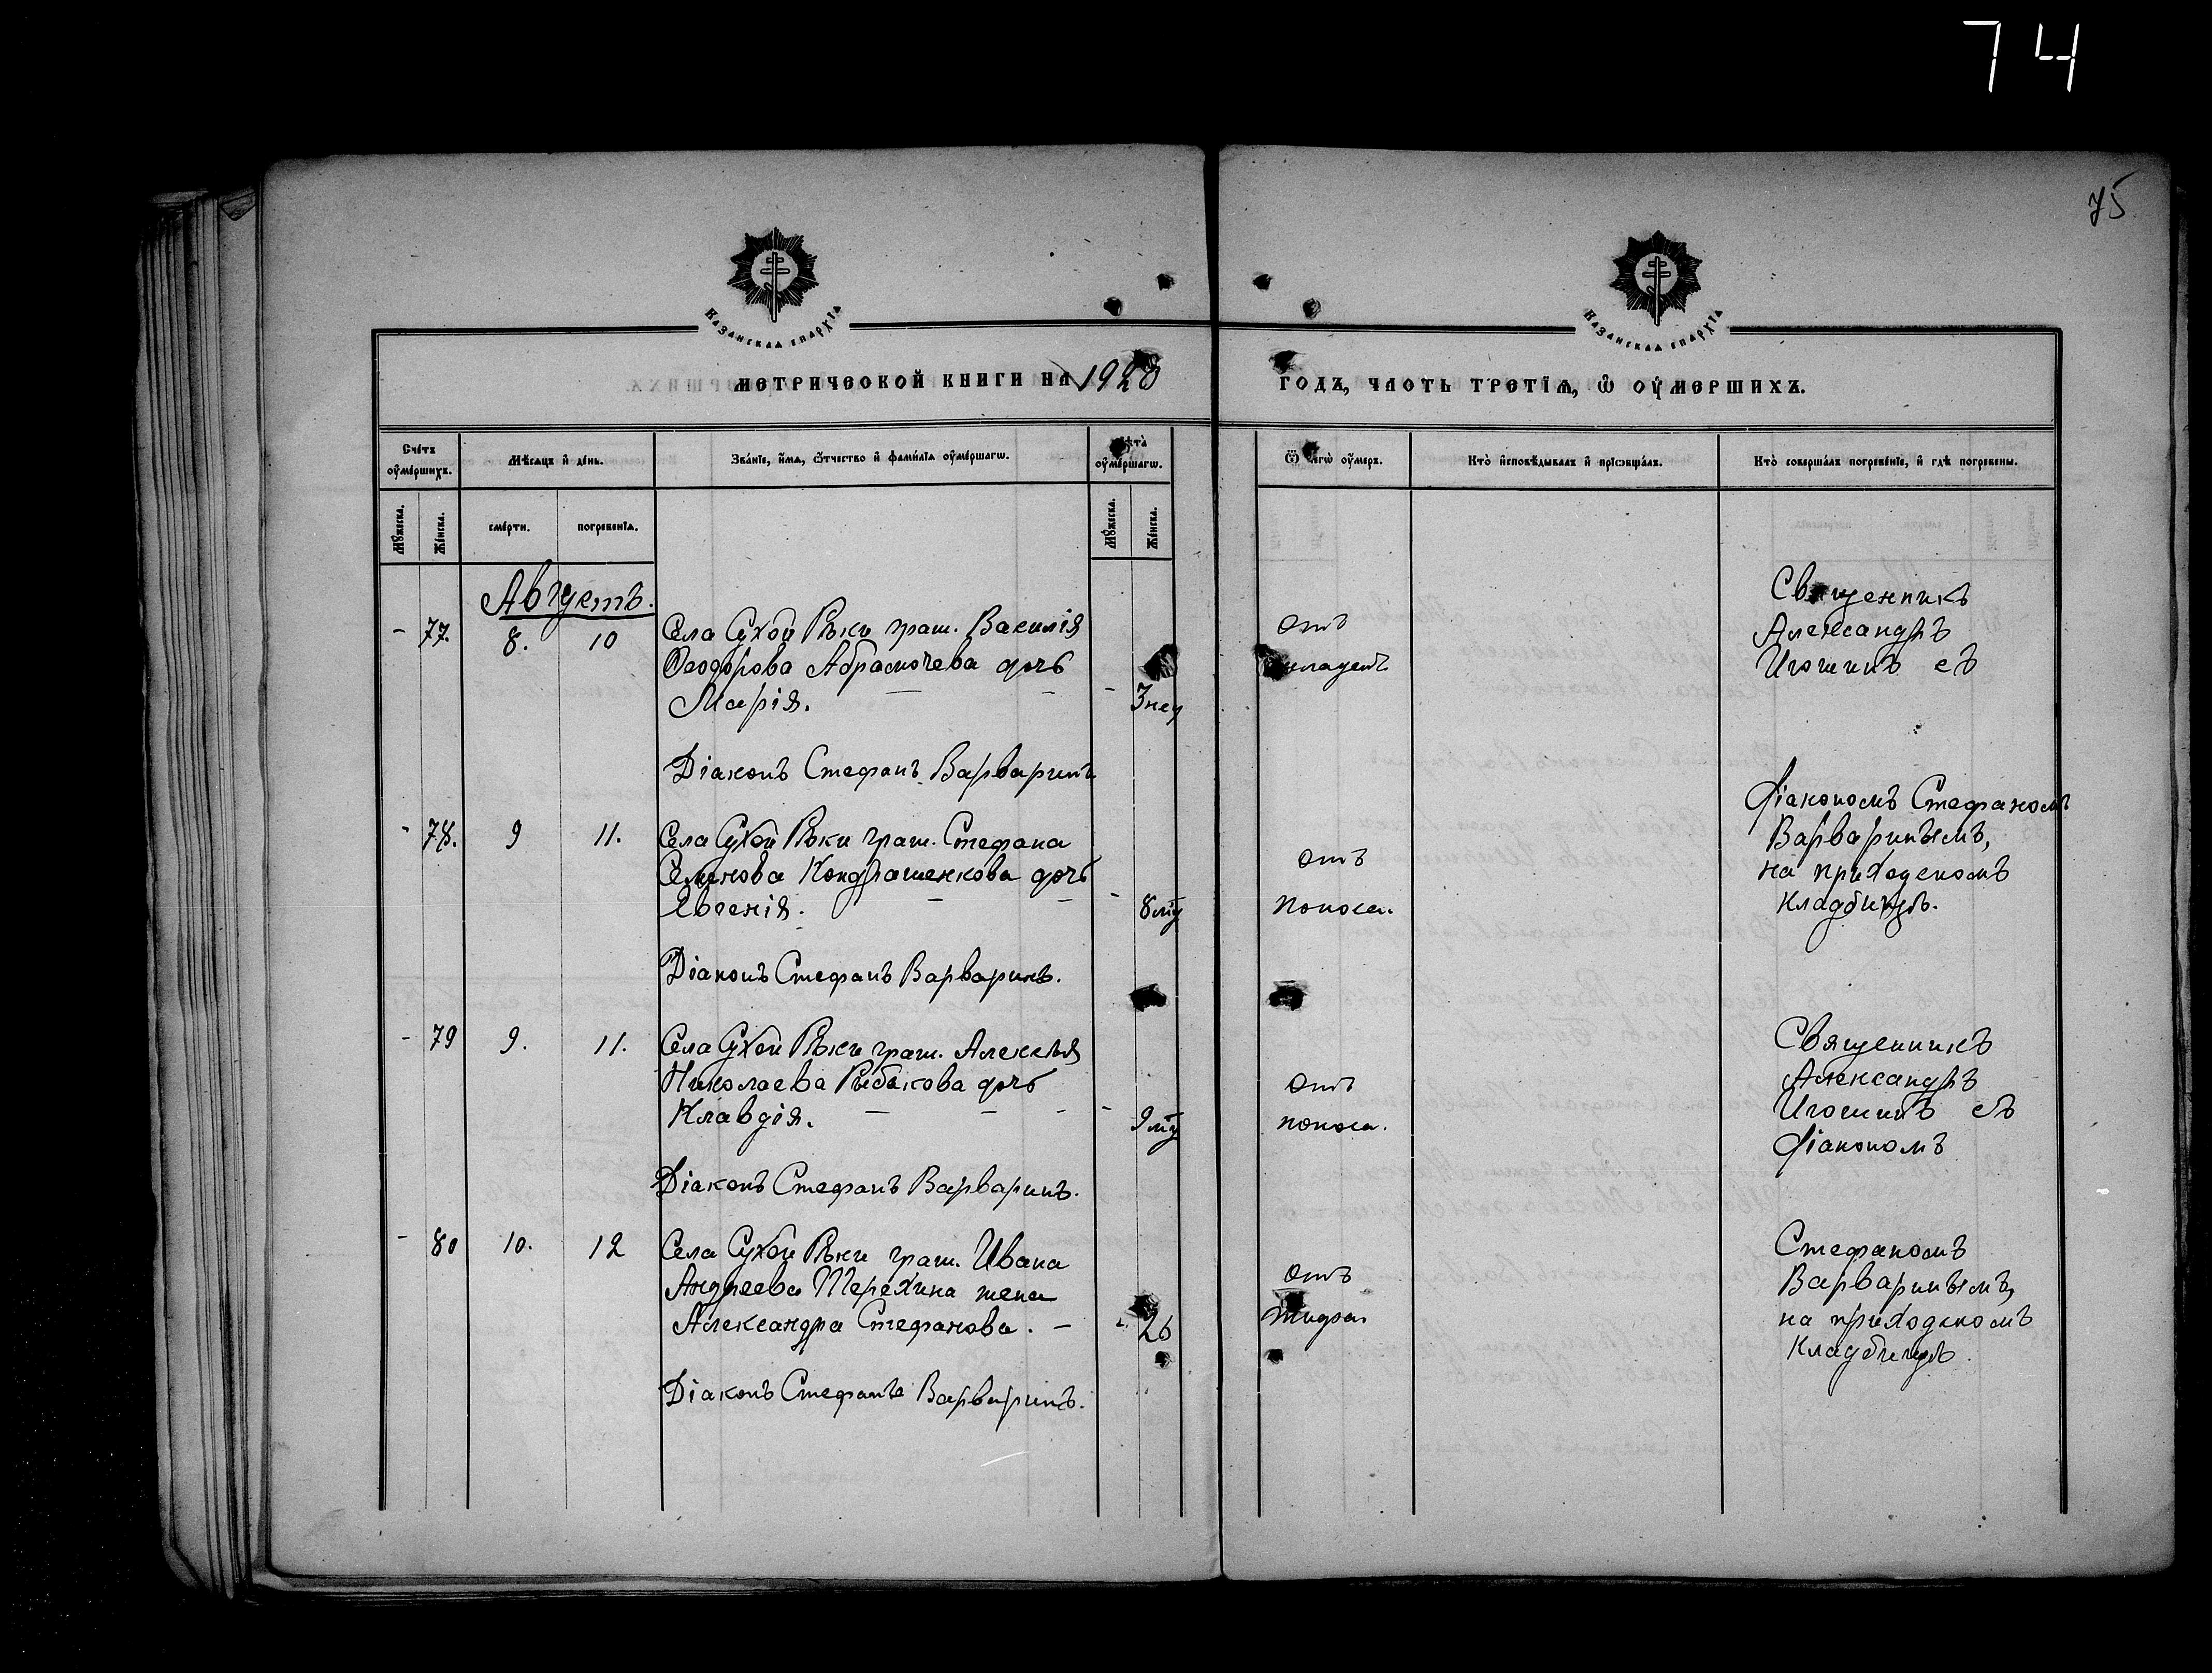 74
75
КАЗАНСКАѦ ЕПАРХІѦ
КАЗАНСКАѦ ЕПАРХІѦ
МЕТРИЧЕСКОЙ КНИГИ НА 1920 ГОДЪ, ЧАСТЬ ТРЕТІѦ, Ѽ ОУМЕРШИХЪ.
Счетъ оумершихъ.
Мѣсяцъ и день.
Званіе, имѧ, ѿчество и фамиліѧ оумершагѡ.
Лѣта оумершагѡ.
Ѿ чегѡ оумеръ.
Кто исповѣдывалъ и пріѡбщалъ.
Кто совершалъ погребеніе, и гдѣ погребены.
Мужеска.
Женска.
смерти.
погребеніѧ.
Мужеска.
Женска.
Августъ.
- 77. 8. 10 Села Сухой Рѣки граж. Василія
Ѳеодорова Абрамочева дочь
Марія. - - - 3 нед
отъ
младен
Священникъ
Александръ
Игошинъ съ
Діаконъ Стефанъ Варваринъ
- 78. 9 11. Села Сухой Рѣки граж. Стефана
Семенова Кондрашенкова дочь
Евгенія. - - - 8 мц
отъ
поноса.
Діакономъ Стефаномъ
Варваринымъ,
на приходскомъ
кладбищѣ.
Діаконъ Стефанъ Варваринъ.
- 79 9. 11. Села Сухой Рѣки граж. Алексѣя
Николаева Рыбакова дочь
Клавдія. - - - - 9 мц
отъ
поноса.
Священникъ
Александръ
Игошинъ съ
Діакономъ
Діаконъ Стефанъ Варваринъ.
- 80 10. 12 Села Сухой Рѣки граж. Ивана
Андреева Терехина жена
Александра Стефанова. - - 26
отъ
тифа
Стефаномъ
Варваринымъ,
на приходскомъ
Кладбищѣ.
Діаконъ Стефанъ Варваринъ.